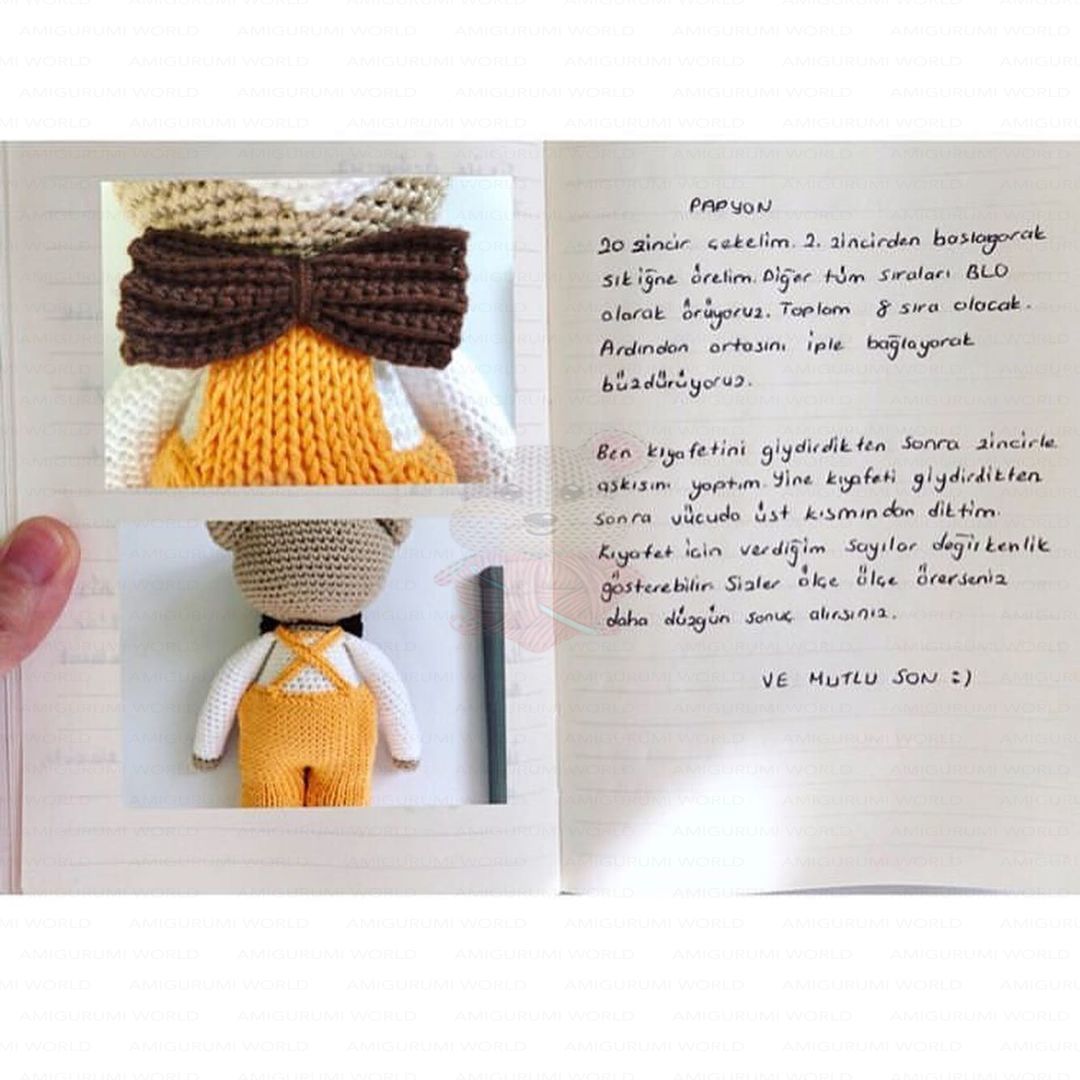 PAPYON
20 zincir çekelim. 2. zincirden başlayarak
sık iğne örelim. Diğer tüm sıraları BLO
olarak örüyoruz. Toplam 8 sıra olacak.
Ardından ortasını iple bağlayarak
büzdürüyoruz.
Ben kıyafetini giydirdikten sonra zincirle
askısını yaptım. Yine kıyafeti giydirdikten
sonra vücuda üst kısmından diktim.
Kıyafet için verdiğim sayılar değişkenlik
gösterebilir. Sizler ölçe ölçe örerseniz
daha düzgün sonuç alırsınız.
VE MUTLU SON :)
AMIGURUMI WORLD